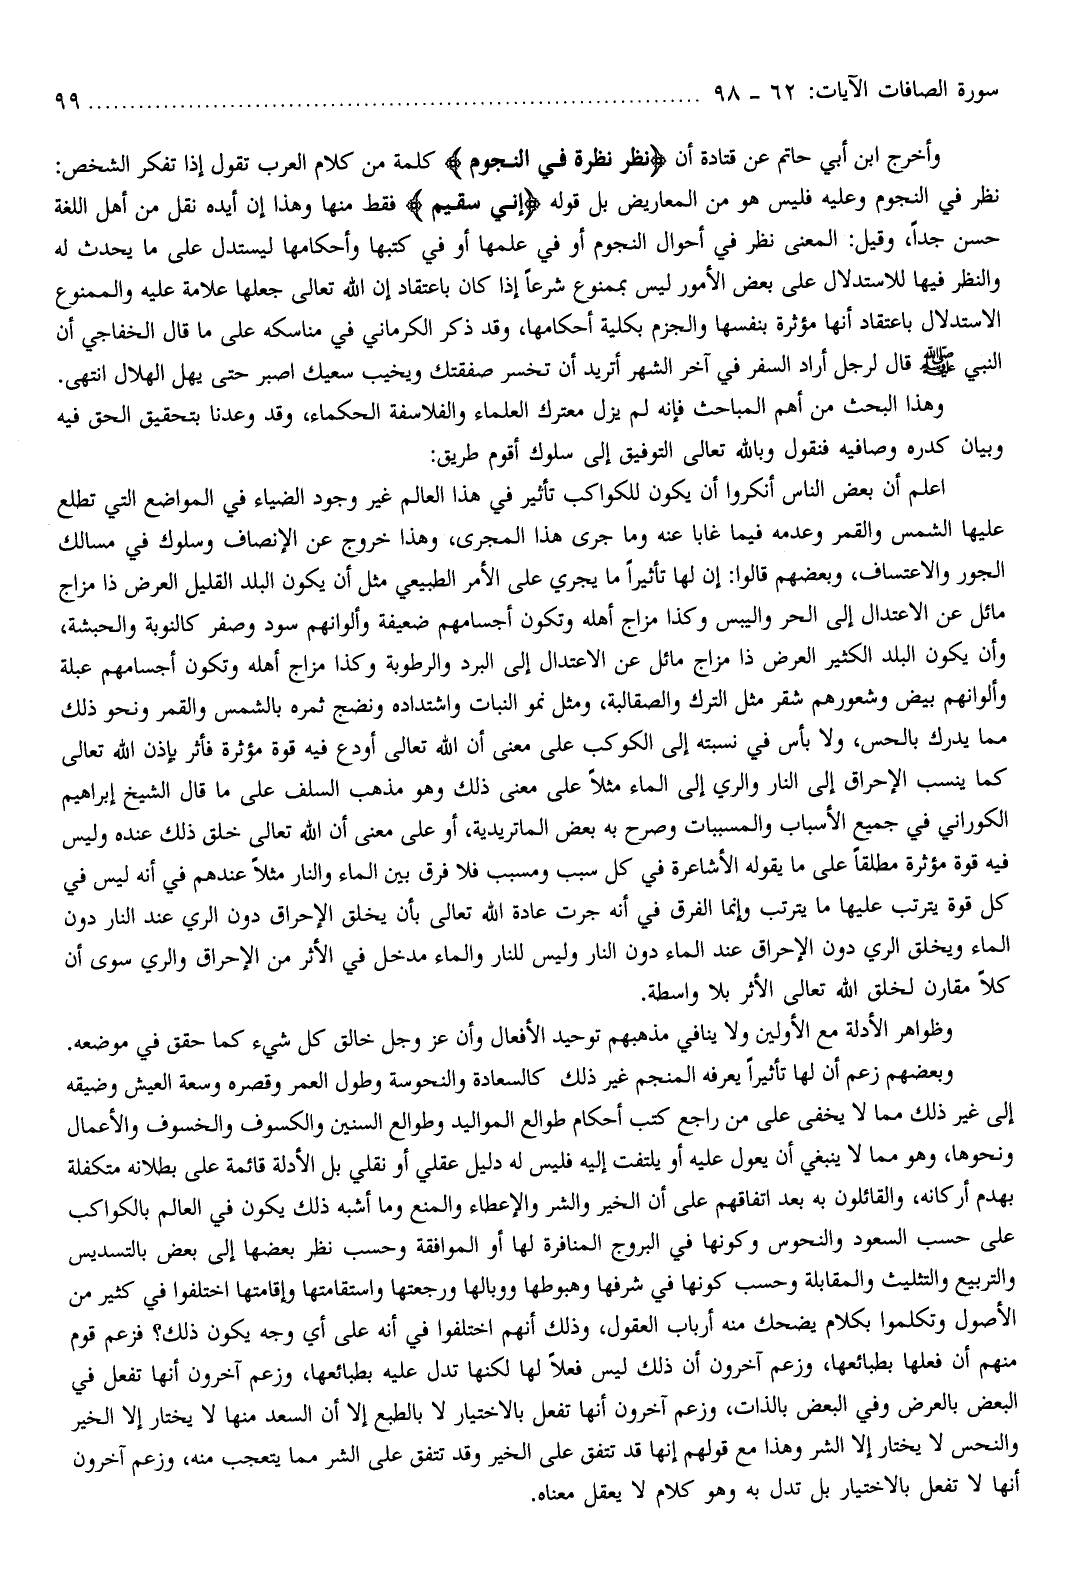 سورة الصافات الآيات: ٦٢ ـ ٩٨ ........................................................................ ٩٩
وأخرج ابن أبي حاتم عن قتادة أن ﴿نظر نظرة في النجوم﴾ كلمة من كلام العرب تقول إذا تفكر الشخص:
نظر في النجوم وعليه فليس هو من المعاريض بل قوله ﴿إني سقيم﴾ فقط منها وهذا إن أيده نقل من أهل اللغة
حسن جداً، وقيل: المعنى نظر في أحوال النجوم أو في علمها أو في كتبها وأحكامها ليستدل على ما يحدث له
والنظر فيها للاستدلال على بعض الأمور ليس بممنوع شرعاً إذا كان باعتقاد إن الله تعالى جعلها علامة عليه والممنوع
الاستدلال باعتقاد أنها مؤثرة بنفسها والجزم بكلية أحكامها، وقد ذكر الكرماني في مناسكه على ما قال الخفاجي أن
النبي ﷺ قال لرجل أراد السفر في آخر الشهر أتريد أن تخسر صفقتك ويخيب سعيك اصبر حتى يهل الهلال انتهى.
وهذا البحث من أهم المباحث فإنه لم يزل معترك العلماء والفلاسفة الحكماء، وقد وعدنا بتحقيق الحق فيه
وبيان كدره وصافيه فنقول وبالله تعالى التوفيق إلى سلوك أقوم طريق:
اعلم أن بعض الناس أنكروا أن يكون للكواكب تأثير في هذا العالم غير وجود الضياء في المواضع التي تطلع
عليها الشمس والقمر وعدمه فيما غابا عنه وما جرى هذا المجرى، وهذا خروج عن الإنصاف وسلوك في مسالك
الجور والاعتساف، وبعضهم قالوا: إن لها تأثيراً ما يجري على الأمر الطبيعي مثل أن يكون البلد القليل العرض ذا مزاج
مائل عن الاعتدال إلى الحر واليبس وكذا مزاج أهله وتكون أجسامهم ضعيفة وألوانهم سود وصفر كالنوبة والحبشة،
وأن يكون البلد الكثير العرض ذا مزاج مائل عن الاعتدال إلى البرد والرطوبة وكذا مزاج أهله وتكون أجسامهم عبلة
وألوانهم بيض وشعورهم شقر مثل الترك والصقالبة، ومثل نمو النبات واشتداده ونضج ثمره بالشمس والقمر ونحو ذلك
مما يدرك بالحس، ولا بأس في نسبته إلى الكوكب على معنى أن الله تعالى أودع فيه قوة مؤثرة فأثر بإذن الله تعالى
كما ينسب الإحراق إلى النار والري إلى الماء مثلاً على معنى ذلك وهو مذهب السلف على ما قال الشيخ إبراهيم
الكوراني في جميع الأسباب والمسببات وصرح به بعض الماتريدية، أو على معنى أن الله تعالى خلق ذلك عنده وليس
فيه قوة مؤثرة مطلقاً على ما يقوله الأشاعرة في كل سبب ومسبب فلا فرق بين الماء والنار مثلاً عندهم في أنه ليس في
كل قوة يترتب عليها ما يترتب وإنما الفرق في أنه جرت عادة الله تعالى بأن يخلق الإحراق دون الري عند النار دون
الماء ويخلق الري دون الإحراق عند الماء دون النار وليس للنار والماء مدخل في الأثر من الإحراق والري سوى أن
كلاً مقارن لخلق الله تعالى الأثر بلا واسطة.
وظواهر الأدلة مع الأولين ولا ينافي مذهبهم توحيد الأفعال وأن عز وجل خالق كل شيء كما حقق في موضعه.
وبعضهم زعم أن لها تأثيراً يعرفه المنجم غير ذلك كالسعادة والنحوسة وطول العمر وقصره وسعة العيش وضيقه
إلى غير ذلك مما لا يخفى على من راجع كتب أحكام طوالع المواليد وطوالع السنين والكسوف والخسوف والأعمال
ونحوها، وهو مما لا ينبغي أن يعول عليه أو يلتفت إليه فليس له دليل عقلي أو نقلي بل الأدلة قائمة على بطلانه متكفلة
بهدم أركانه، والقائلون به بعد اتفاقهم على أن الخير والشر والإعطاء والمنع وما أشبه ذلك يكون في العالم بالكواكب
على حسب السعود والنحوس وكونها في البروج المنافرة لها أو الموافقة وحسب نظر بعضها إلى بعض بالتسديس
والتربيع والتثليث والمقابلة وحسب كونها في شرفها وهبوطها ووبالها ورجعتها واستقامتها وإقامتها اختلفوا في كثير من
الأصول وتكلموا بكلام يضحك منه أرباب العقول، وذلك أنهم اختلفوا في أنه على أي وجه يكون ذلك؟ فزعم قوم
منهم أن فعلها بطبائعها، وزعم آخرون أن ذلك ليس فعلاً لها لكنها تدل عليه بطبائعها، وزعم آخرون أنها تفعل في
البعض بالعرض وفي البعض بالذات، وزعم آخرون أنها تفعل بالاختيار لا بالطبع إلا أن السعد منها لا يختار إلا الخير
والنحس لا يختار إلا الشر وهذا مع قولهم إنها قد تتفق على الخير وقد تتفق على الشر مما يتعجب منه، وزعم آخرون
أنها لا تفعل بالاختيار بل تدل به وهو كلام لا يعقل معناه.